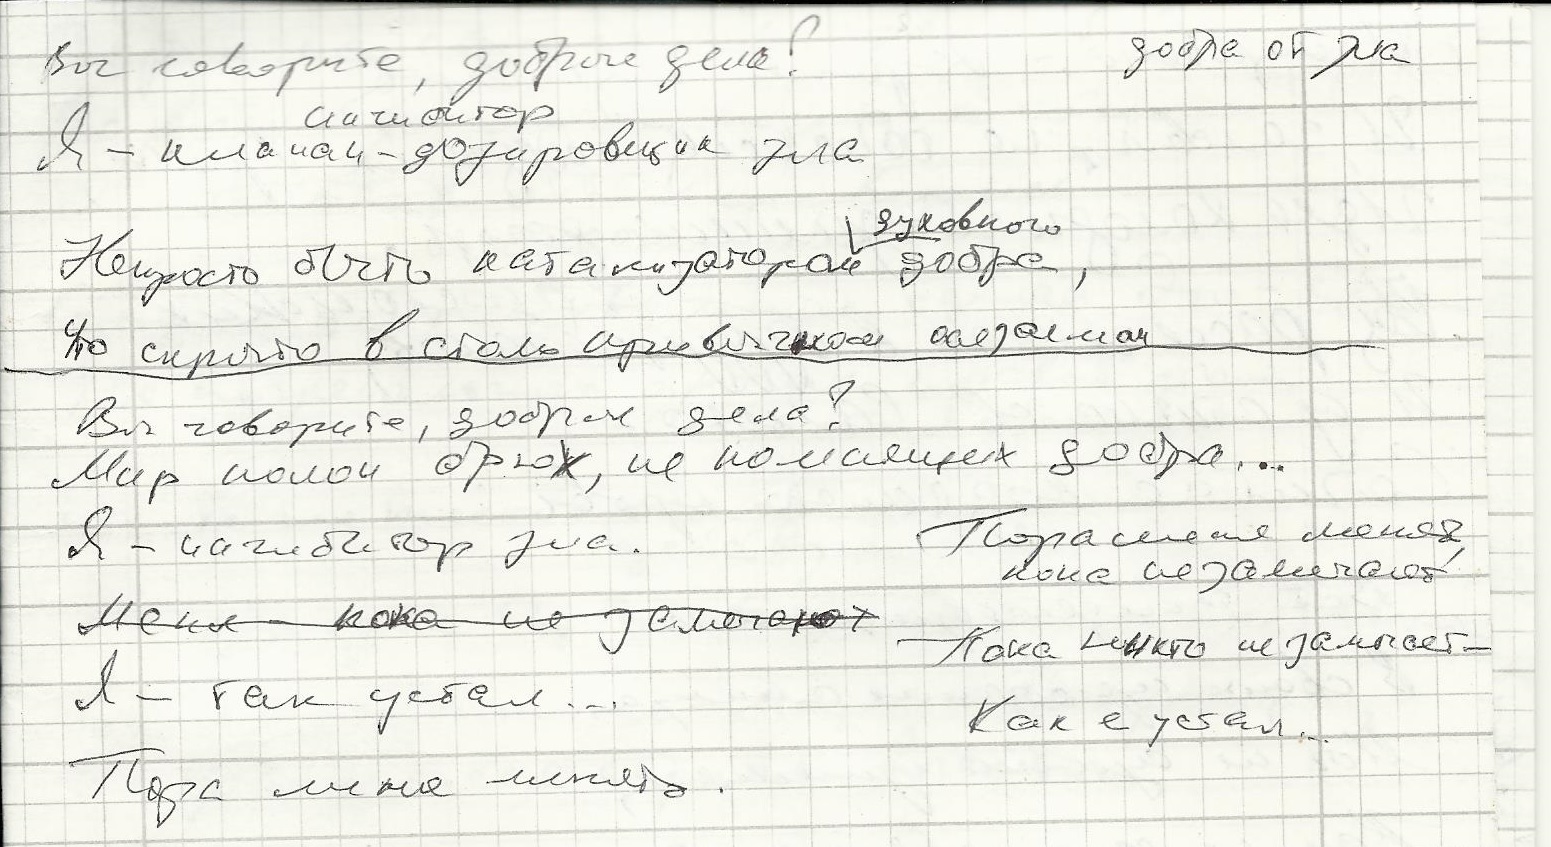 Вы говорите, добрые дела?
добра от зла
ингибитор
Я – клапан-дозировщик зла
духовного
Непросто быть катализатором добра,
Что скрыто в столь привычном осязании
Вы говорите, добрые дела?
Мир полон брюх, не помнящих добра...
Я – ингибитор зла.
Пора меня менять,
пока не замечают
Меня пока не замечают
Пока никто не замечает –
Я – так устал...
Как я устал...
Пора меня менять.